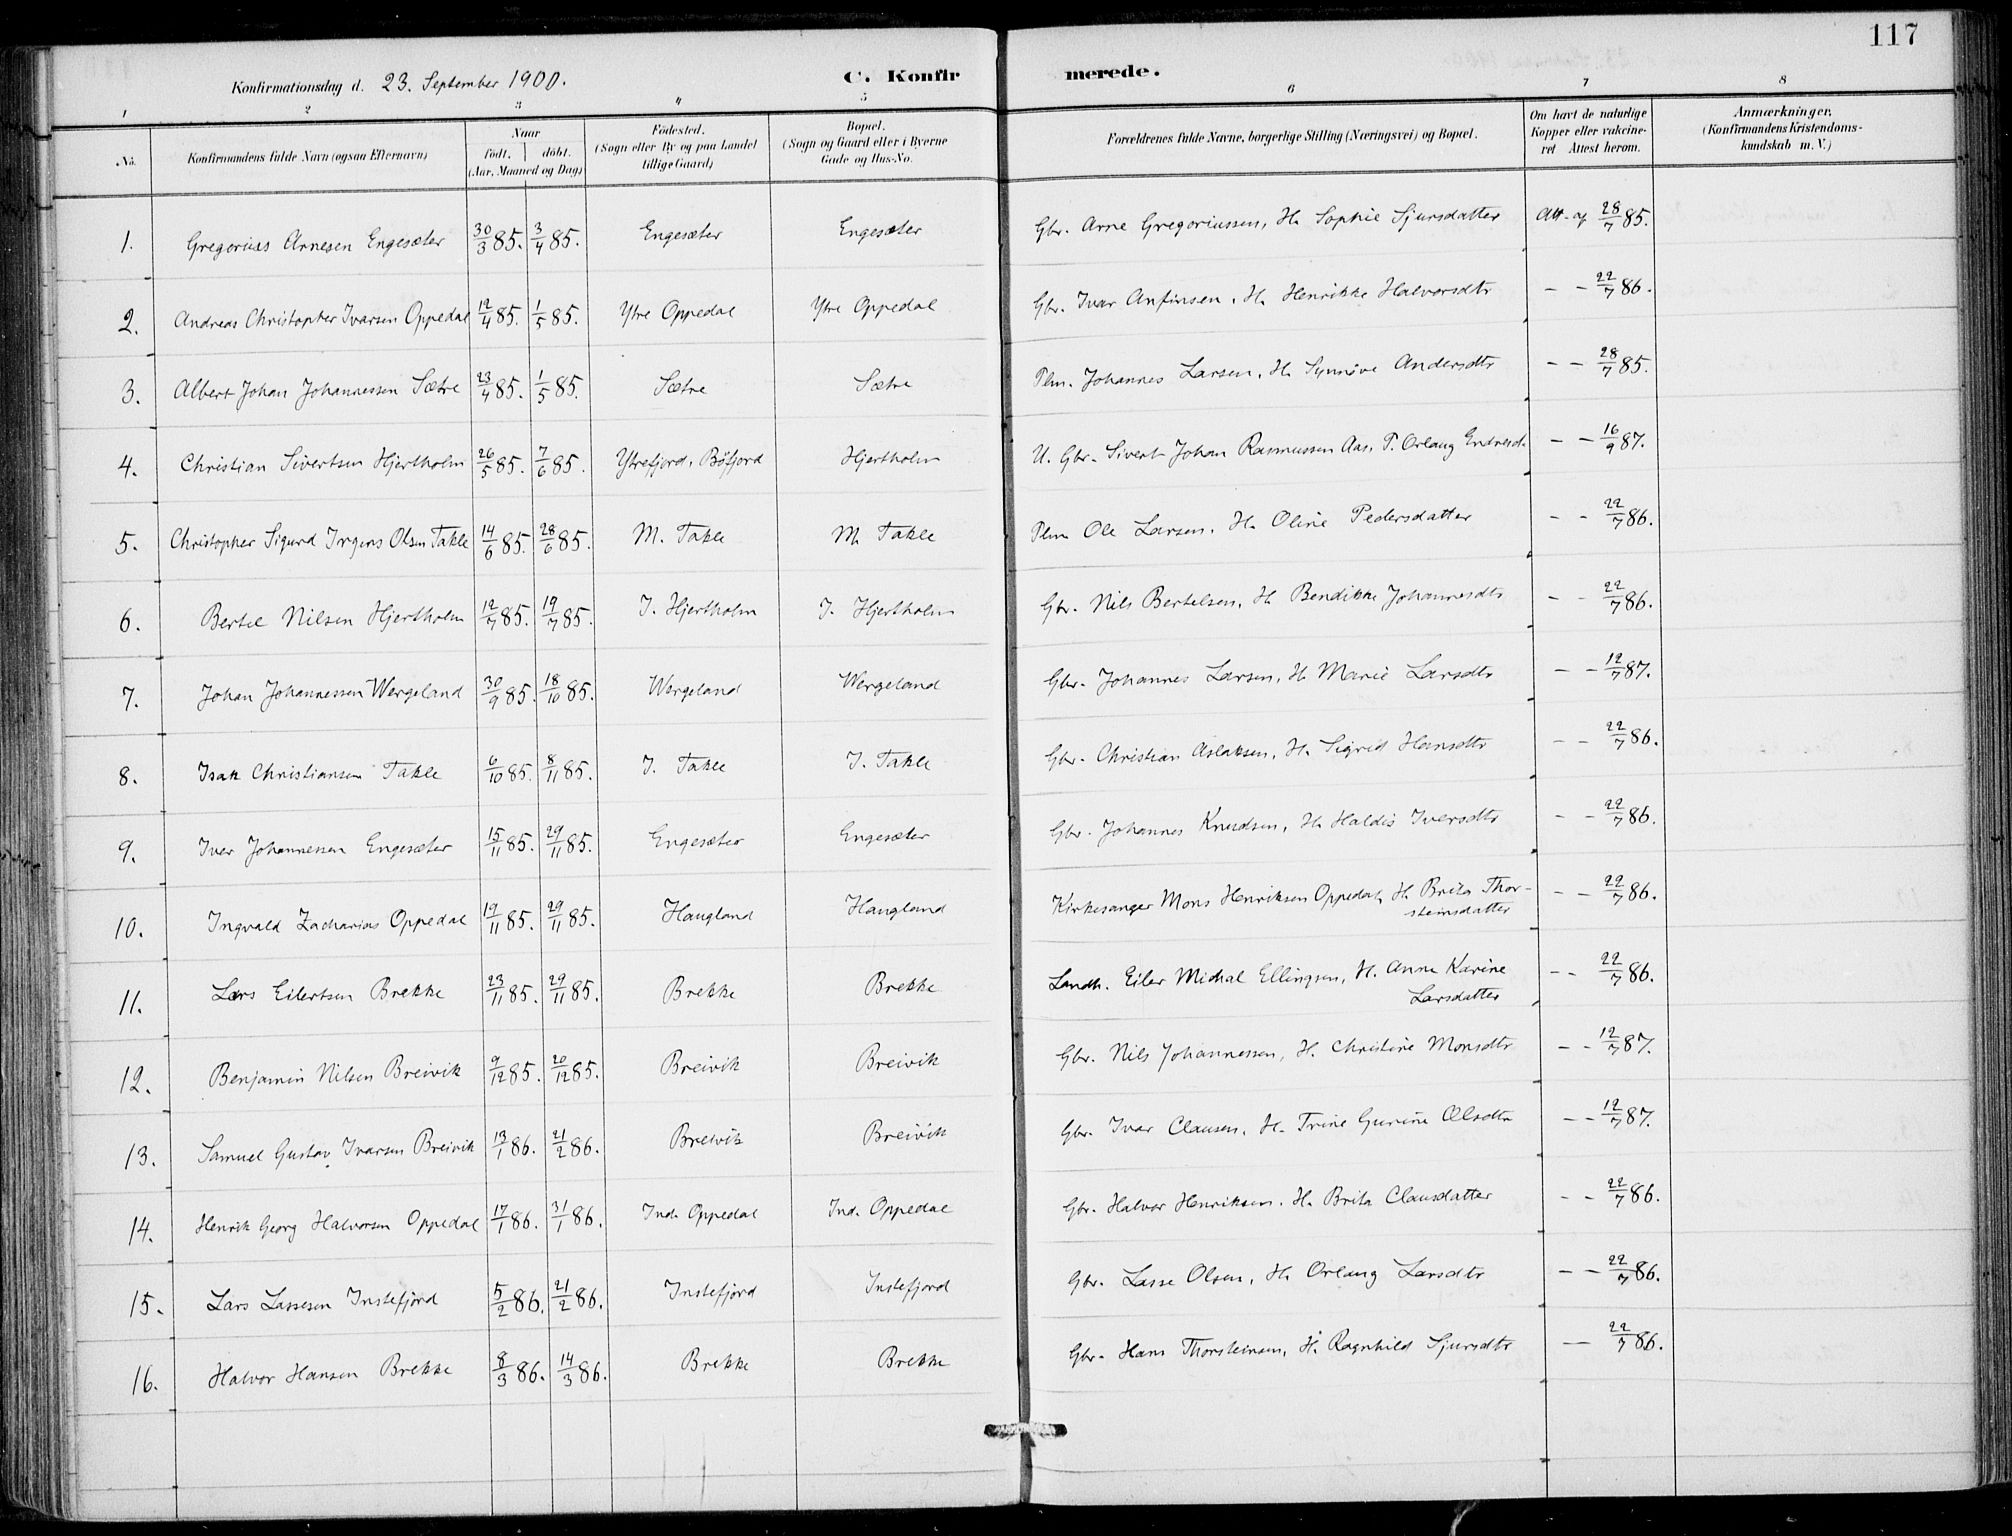 117
Konfirmationsdag d. 23. September 1900.
C. Konfirmerede.
1 2 3 4 5 6 7 8
No.
Konfirmandens fulde Navn (ogsaa Efternavn)
Naar
født. | døbt.
(Aar, Maaned og Dag)
Fødested.
(Sogn eller By og paa Landet
tillige Gaard)
Bopæl.
(Sogn og Gaard eller i Byerne
Gade og Hus-No.
Forældrenes fulde Navne, borgerlige Stilling (Næringsvei) og Bopæl.
Om havt de naturlige
Kopper eller vakcine-
ret Attest herom.
Anmærkninger.
(Konfirmandens Kristendoms-
kundskab m. V.)
1. Gregorius Arnesen Engesæter 30/3 85. 3/4 85. Engesæter Engesæter Gbr. Arne Gregoriussen, H. Sophie Sjursdatter Att. af 28/7 85.
2. Andreas Christopher Ivarsen Oppedal 12/4 85. 1/5 85. Ytre Oppedal Ytre Oppedal Gbr. Ivar Anfinsen, H. Henrikke Halvorsdtr - - 22/7 86.
3. Albert Johan Johannessen Sætre 23/4 85. 1/5 85. Sætre Sætre Plm. Johannes Larsen, H. Synnöve Andersdtr - - 28/7 85.
4. Christian Sivertsen Hjertholm 26/5 85. 7/6 85. Ytrefjord, Böfjord Hjertholm U. Gbr. Sivert Johan Rasmussen Aas, P. Orlaug Endresd. - - 16/9 87.
5. Christopher Sigurd Irgens Olsen Takle 14/6 85. 28/6 85. M. Takle M. Takle Plm Ole Larsen, H. Oline Pedersdatter - - 22/7 86.
6. Bertel Nilsen Hjertholm 12/7 85. 19/7 85. I. Hjertholm I. Hjertholm Gbr. Nils Bertelsen, H. Bendikke Johannesdtr - - 22/7 86.
7. Johan Johannessen Wergeland 30/9 85. 18/10 85. Wergeland Wergeland Gbr. Johannes Larsen, H. Marie Larsdtr - - 12/7 87.
8. Isak Christiansen Takle 6/10 85. 8/11 85. I. Takle I. Takle Gbr. Christian Aslaksen, H. Sigrid Hansdtr - - 22/7 86.
9. Iver Johannessen Engesæter 15/11 85. 29/11 85. Engesæter Engesæter Gbr. Johannes Knudsen, H. Haldis Iversdtr - - 22/7 86.
10. Ingvald Zacharias Oppedal 19/11 85. 29/11 85. Haugland Haugland Kirkesanger Mons Henriksen Oppedal, H. Brita Thor-
steinsdatter - - 22/7 86.
11. Lars Eilertsen Brekke 23/11 85. 29/11 85. Brekke Brekke Landh. Eiler Michal Ellingsen, H. Anne Karine
Larsdatter - - 22/7 86.
12. Benjamin Nilsen Breivik 9/12 85. 20/12 85. Breivik Breivik Gbr. Nils Johannessen, H. Christine Monsdtr - - 12/7 87.
13. Samuel Gustav Ivarsen Breivik 13/1 86. 21/2 86. Breivik Breivik Gbr. Ivar Clausen, H. Trine Gurine Olsdtr - - 12/7 87.
14. Henrik Georg Halvorsen Oppedal 17/1 86. 31/1 86. Ind. Oppedal Ind. Oppedal Gbr. Halvor Henriksen, H. Brita Clausdatter - - 22/7 86.
15. Lars Lassesen Instefjord 5/2 86. 21/2 86. Instefjord Instefjord Gbr. Lasse Olsen, H. Orlaug Larsdtr - - 22/7 86.
16. Halvor Hansen Brekke 8/3 86. 14/3 86. Brekke Brekke Gbr. Hans Thorsteinsen, H. Ragnhild Sjursdtr - - 22/7 86.